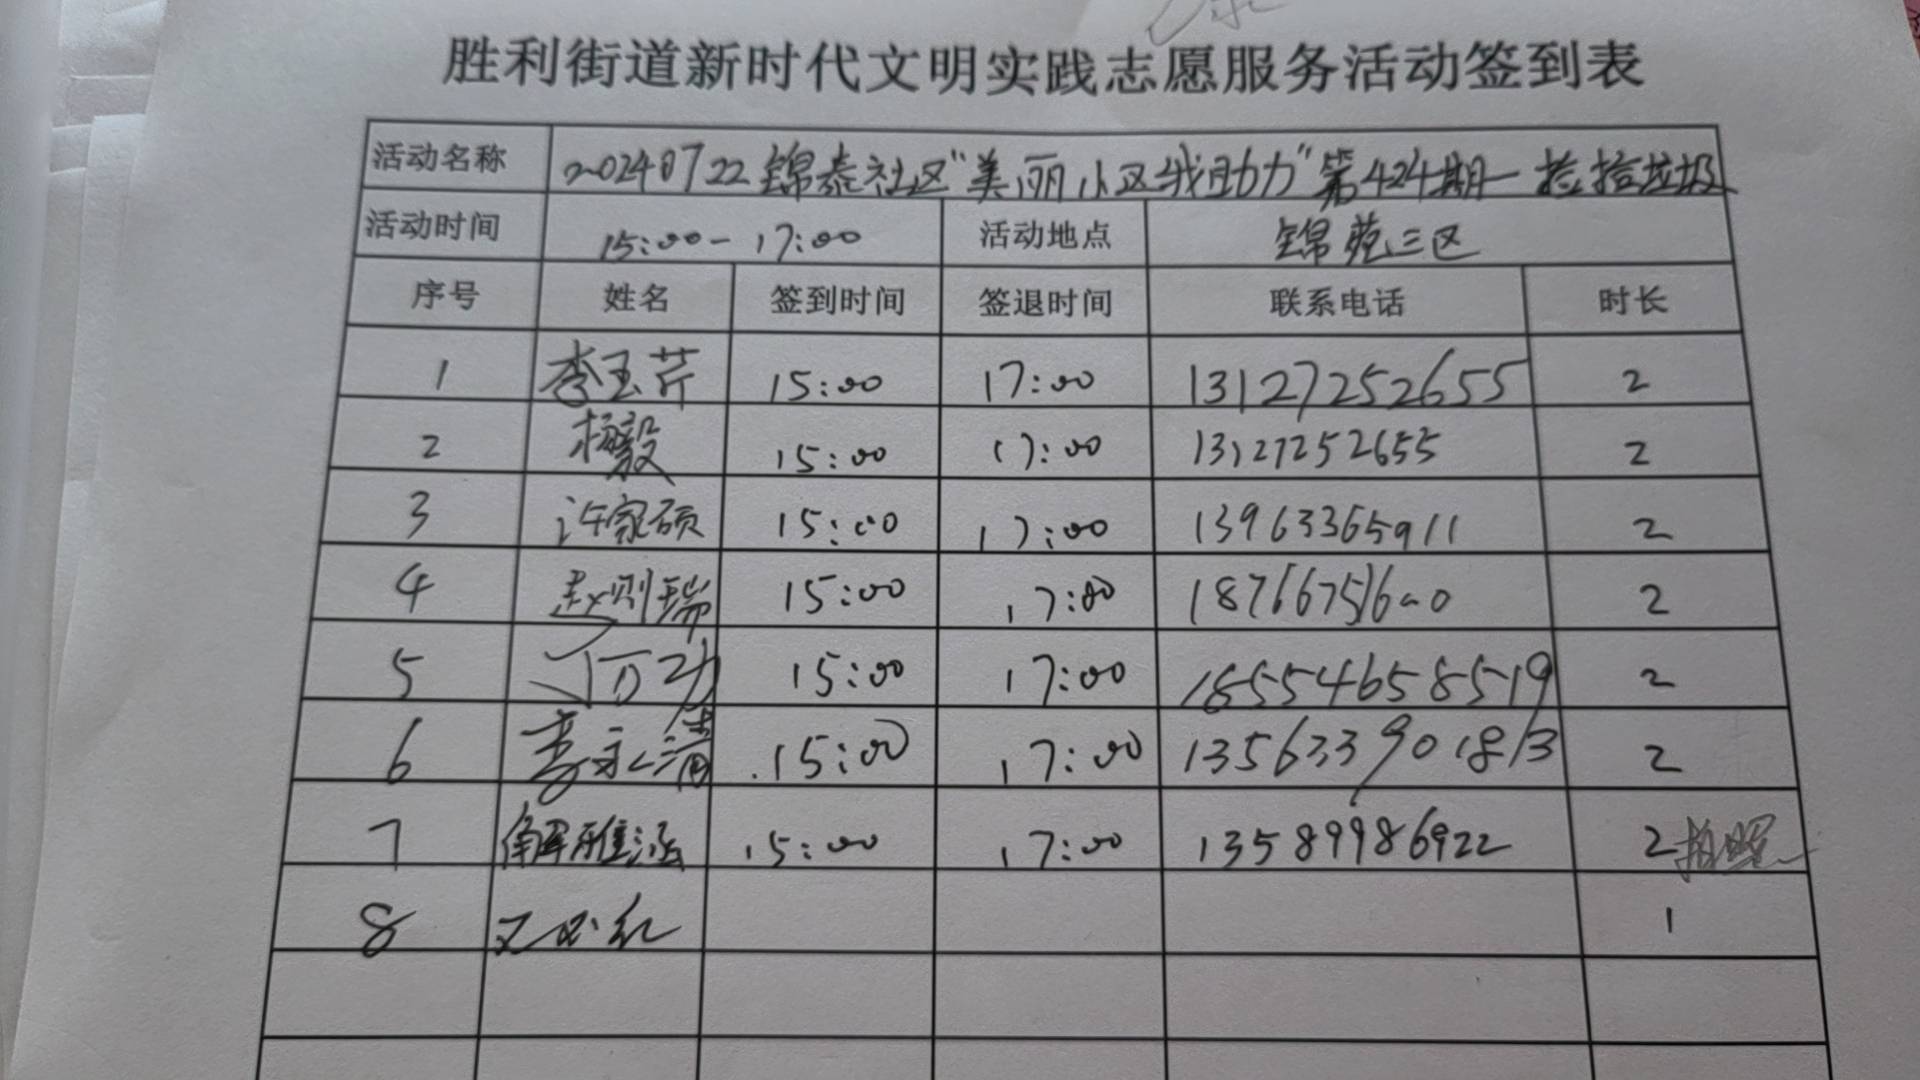 胜利街道新时代文明实践志愿服务活动签到表
活动名称 20240722锦泰社区“美丽小区我助力”第424期—捡拾垃圾
活动时间 15:00-17:00 活动地点 锦苑三区
序号 姓名 签到时间 签退时间 联系电话 时长
1 李玉芹 15:00 17:00 13127252655 2
2 杨毅 15:00 17:00 13127252655 2
3 许家硕 15:00 17:00 13963365911 2
4 赵则瑞 15:00 17:00 18766751600 2
5 15:00 17:00 18554658519 2
6 李永清 15:00 17:00 135633901813 2
7 解雅涵 15:00 17:00 13589986922 2 拍照
8 1